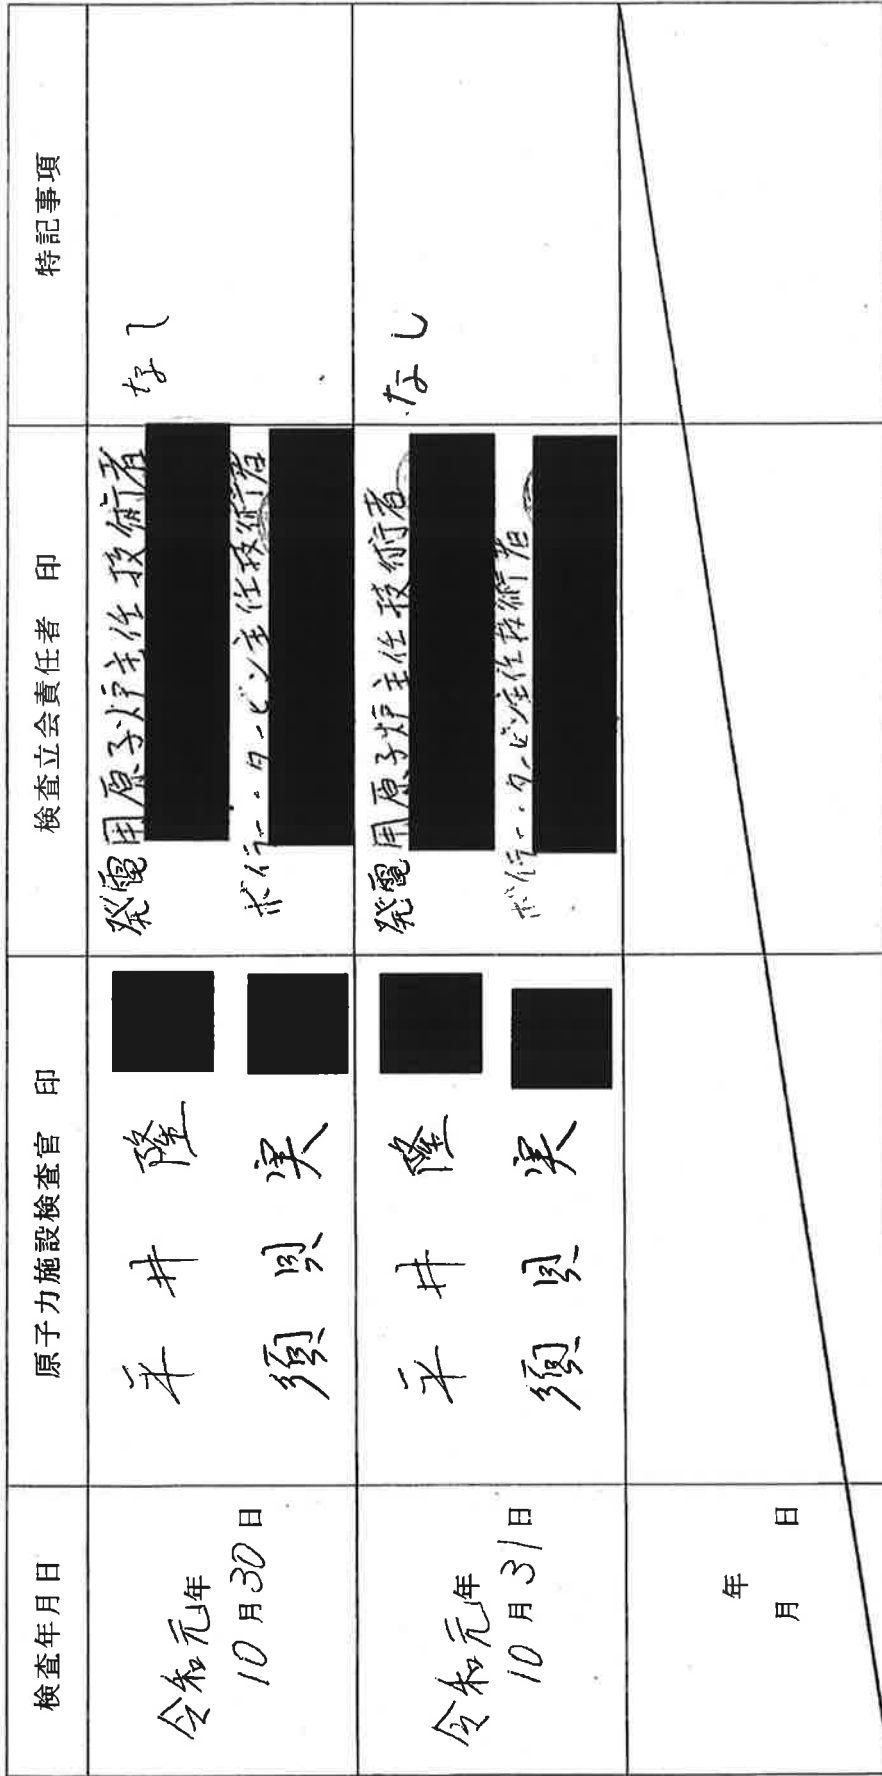 検査年月日
原子力施設検査官 印
検査立会責任者 印
特記事項
令和元年
10月30日
平井 隆
須貝 実
発電用原子炉主任技術者
ボイラー・タービン主任技術者
なし
令和元年
10月31日
平井 隆
須貝 実
発電用原子炉主任技術者
ボイラー・タービン主任技術者
なし
年
月 日